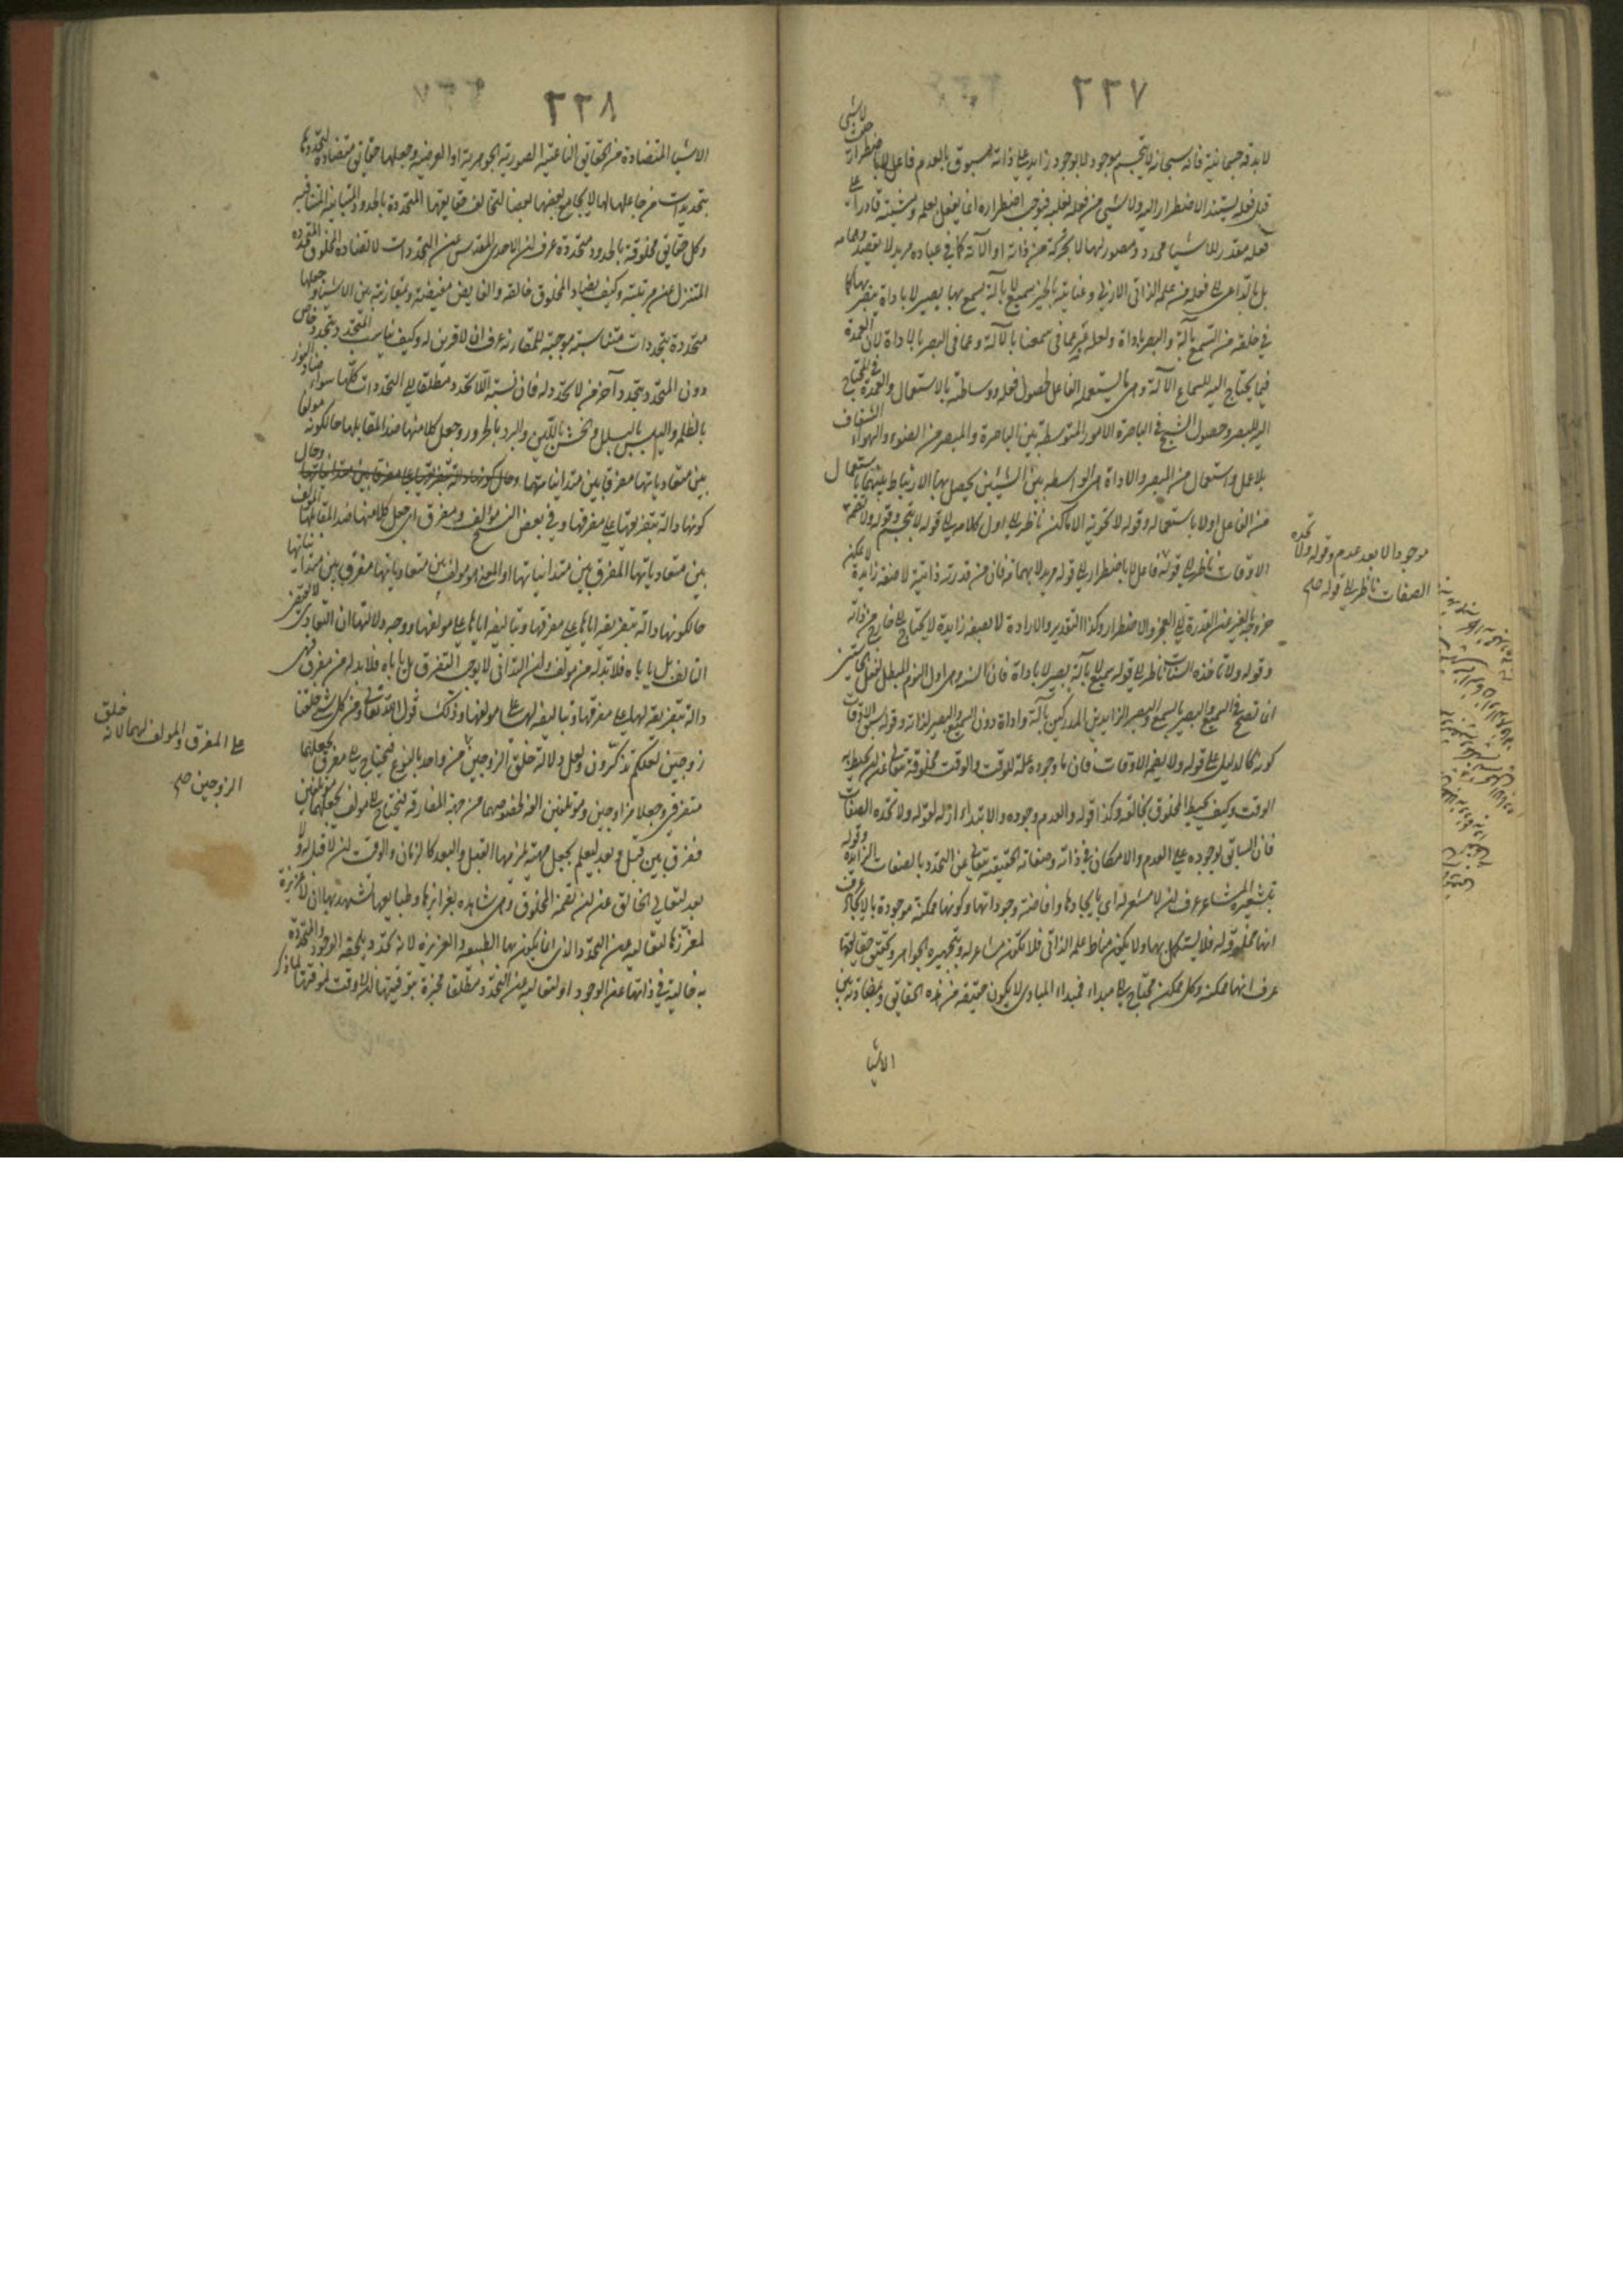 ٢٣٧
لا بدّ قه جسمانية فانه سبحانه لا يتجسم موجود لا بوجود زايد على ذاته مسبوق بالعدم فاعل لا باضطرار
قبل فعله يستند الاضطرار اليه ولا شيء من فعله يغلبه فيوجب اضطراره انما يفعل بعلم ومشيته قادرا على
فعله مقدر للاشياء محدد ومصور لها لا بحركة من ذاته او الآلة كما في عباده مريد لا بقصد وهمامه
بل بالداعى فعله من علمه الذاتى الازلى وعنايته بالخير سميع لا بآلة يسمع بها بصير لا باداة يبصر بها كما
في خلقه من السمع بآلة والبصر باداة ولعله عبر عما في سمعنا بالآلة وعما في البصر بالاداة لان العمدة
فيما يحتاج اليه للسماع الآلة وهى ما يستعمله الفاعل لحصول فعله ووساطته بالاستعمال والعمدة في المحتاج
اليه للبصر وحصول الشبح في الباصرة الامور المتوسطة بين الباصرة والمبصر من الضوء والهواء الشفاف
بلا عمل واستعمال من المبصر والاداة هى الواسطة بين الشيئين يحصل بها الارتباط بينهما باستعمال
من الفاعل اولا باستعماله وقوله لا تحويه الاماكن ناظر الى اول كلامه الى قوله لا يتجسم وقوله ولا تضمه
الاوقات ناظر الى قوله فاعل لا باضطرار الى قوله مريد لا بهمامة فان من قدرته ذاتية لا صفة زايدة لا يمكن
خروجه بالغير عن القدرة الى العجز والاضطرار وكذا التقدير والارادة لا بصفة زايدة لا يحتاج الى خارج من ذاته
وقوله ولا تاخذه السنات ناظر الى قوله سميع لا بآلة بصير لا باداة فان السنة وهى اول النوم المبطل لفعل الحاستين
انما تصح في السميع والبصير بالسمع والبصر الزايدين المدركين بآلة واداة دون السميع والبصير لذاته وقوله سبق الاوقات
كونه كالدليل على قوله ولا تضمه الاوقات فان ما وجوده علة للوقت والوقت مخلوقه متعال عن ان يحيط به
الوقت وكيف يحيط المخلوق بخالقه وكذا قوله والعدم وجوده والابتداء ازله لقوله ولا تحده الصفات
فان السابق لوجوده على العدم والامكان في ذاته وصفاته الحقيقية متعال عن التحدد بالصفات الزايدة وقوله
بتشعيره المشاعر عرف ان لا مشعر له اى بايجادها وافاضة وجوداتها وكونها ممكنة موجودة بالايجاد عرف
انها مخلوقة له فلا يستكمل بها ولا يكون مناط علمه الذاتى فلا تكون مشاعر له وبتجهيره الجواهر وتحقيق حقايقها
عرف انها ممكنة وكل ممكن محتاج الى مبداء فمبداء المبادى لا يكون حقيقة من هذه الحقايق وبمضادته بين
الاشيا
موجودا لا بعد عدم وقوله ولا تحده
الصفات ناظر الى قوله صح
٢٣٨
الاشيا المتضادة من الحقايق النوعية الصورية الجوهرية او العرضية وجعلها حقايق متضادة لتحددها
بتحددات من جاعلها لها لا يجامع بعضها بعضا لتخالف حقايقها المتحددة بالحدود المتباينة المتنافية
وكل حقايق مخلوقة بالحدود متحددة عرف ان الاحدى المقدس عن التحددات لا تضاده المخلوق المتحدده
المتنزل عن مرتبته وكيف يضاد المخلوق خالقه والفايض مفيضه وبمقارنته بين الاشياء وجعلها
متحددة بتحددات متناسبة موجبة للمقارنة عرف ان لا قرين له وكيف يناسب المتحدد بتحدد خاص
دون المتحدد بتحدد آخر من لا تحدد له فان نسبة اللاتحدد مطلقا الى التحددات كلها سواء ضاد النور
بالظلمة واليبس بالبلل والخشن باللين والبرد بالحرور وجعل كلا منها ضد المقابلها حالكونه مؤلفا
بين متعادياتها مفرقا بين متدانياتها وحال
كونها دالة بتفريقها على مفرقها وفي بعض النسخ مؤلف ومفرق اى جعل كلا منها ضد المقابلها المؤلف
بين متعادياتها المفرق بين متدانياتها او المعنى هو مؤلف بين متعادياتها مفرق بين متدانياتها
حالكونها دالة بتفريقه اياها على مفرقها وبتاليفه اياها على مولفها ووجه دلالتها ان التعادى لا يقتضى
التالف بل ياباه فلا بد له من مؤلف وان التدانى لا يوجب التفرق بل ياباه فلا بد له من مفرق فهى
دالة بتفريقه لها على مفرقها وبتاليفه لها على مولفها وذلك قول الله تعالى ومن كل شيء خلقنا
زوجين لعلكم تذكرون ولعل دلالة خلق الزوجين من واحد بالنوع فيحتاج الى مفرق يجعلهما
متفرقين وجعلا مزاوجين ومؤتلفين الفة لخصوصهما من جهة المفارقة فيحتاج الى مولف يجعلهما مؤتلفين
ففرق بين قبل وبعد ليعلم بجعل مهية لزمها القبل والبعد كالزمان والوقت ان لا قبل له ولا
بعد لتعالى الخالق عن ان تضمه المخلوق وهى شاهدة بغرايزها وطبايعها تشهد بها ان لا غريزة
لمغرزها لتعاليه عن التحدد الذى انما يكون بها الطبيعة والغريزة لانه تحدد يلحقه الوجود والمتحددة
به خالية في ذاتها عن الوجود او لتعاليه عن التحدد مطلقا مخبرة بتوقيتها ان لا وقت لموقتها لما ذكر
على المفرق والمولف لهما لانه خلق
الزوجين صح